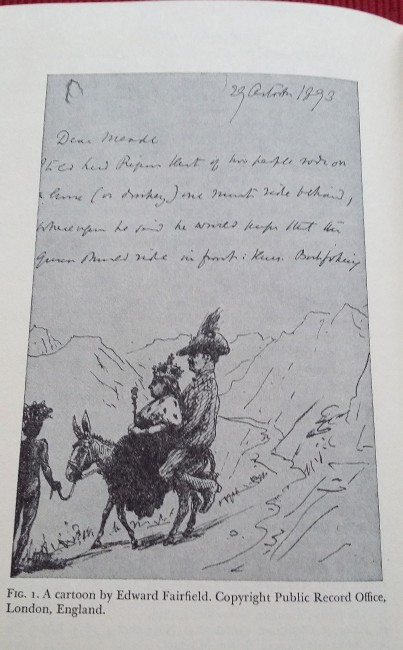 29 October 1893
Dear Meade
told Lord Ripon that if two people rode on
a horse (or donkey) one must ride behind,
whereupon he said he would hope that the
Queen should ride in front:
FIG. 1. A cartoon by Edward Fairfield. Copyright Public Record Office,
London, England.